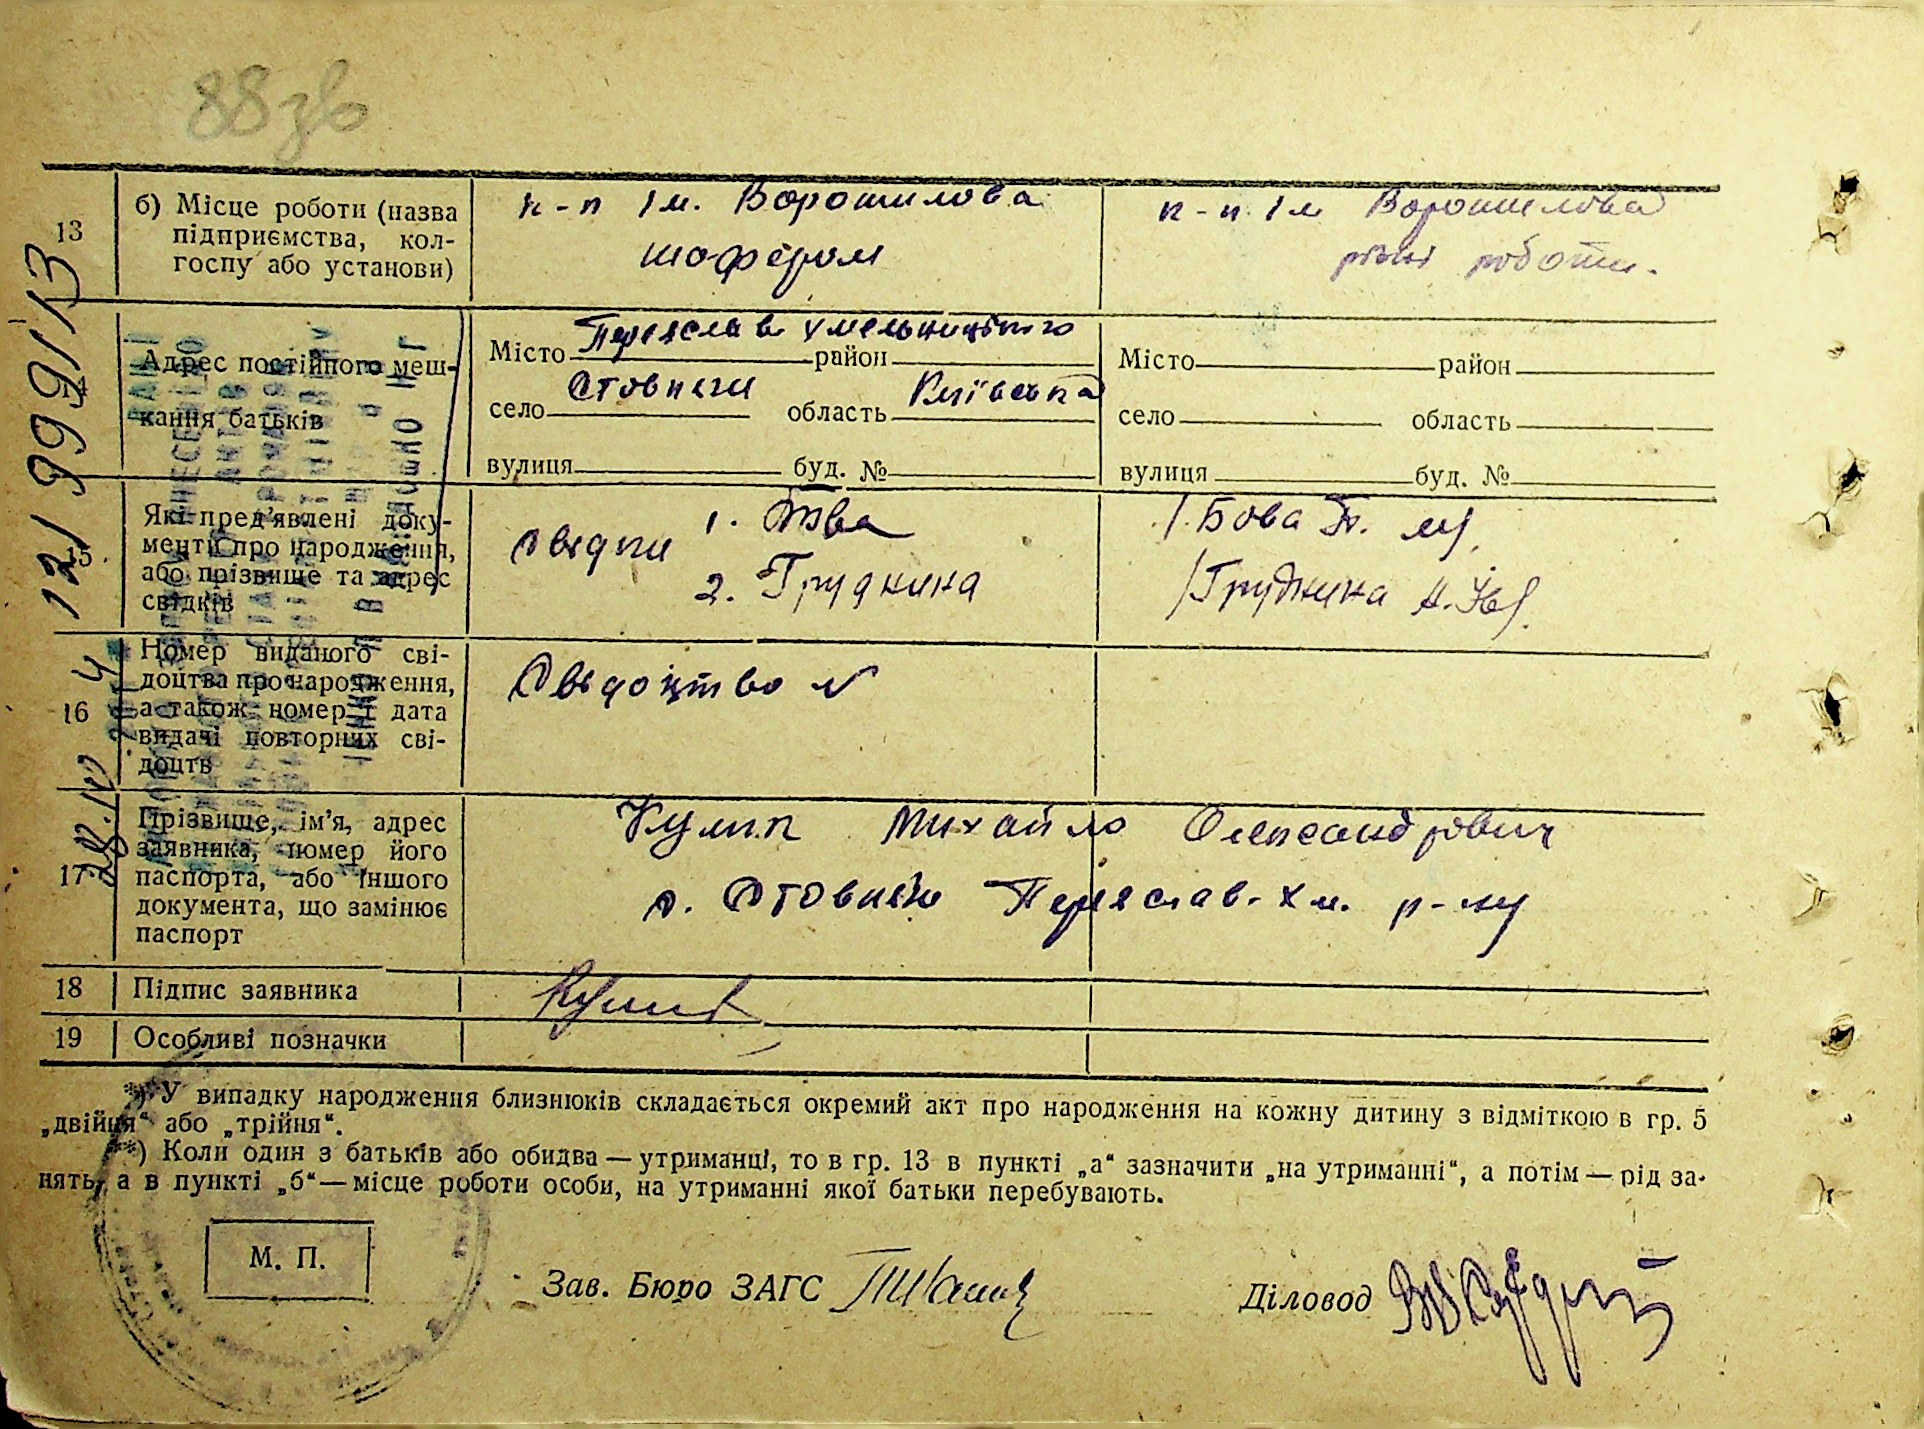 88 зв
13
б) Місце роботи (назва
підприємства, кол-
госпу або установи)
к-п ім. Ворошилова
шофером
к-п ім Ворошилова
різні роботи.
14
Адрес постійного меш-
кання батьків
Місто Переяслав Хмельницького район
село Стовпяги область Київська
вулиця буд. №
Місто район
село область
вулиця буд. №
15
Які пред'явлені доку-
менти про народження,
або прізвище та адрес
свідків
свідки 1. Бова
2. Груднина
/Бова
/Груднина
16
Номер виданого сві-
доцтва про народження,
а також номер і дата
видачі повторних сві-
доцтв
Свідоцтво №
17
Прізвище, ім'я, адрес
заявника, номер його
паспорта, або іншого
документа, що замінює
паспорт
Кулик Михайло Олександрович
с. Стовпяги Переяслав-Хм. р-ну
18
Підпис заявника
Кулик
19
Особливі позначки
*) У випадку народження близнюків складається окремий акт про народження на кожну дитину з відміткою в гр. 5
„двійня“ або „трійня“.
**) Коли один з батьків або обидва — утриманці, то в гр. 13 в пункті „а“ зазначити „на утриманні“, а потім — рід за-
нять, а в пункті „б“ — місце роботи особи, на утриманні якої батьки перебувають.
М. П.
Зав. Бюро ЗАГС
Діловод